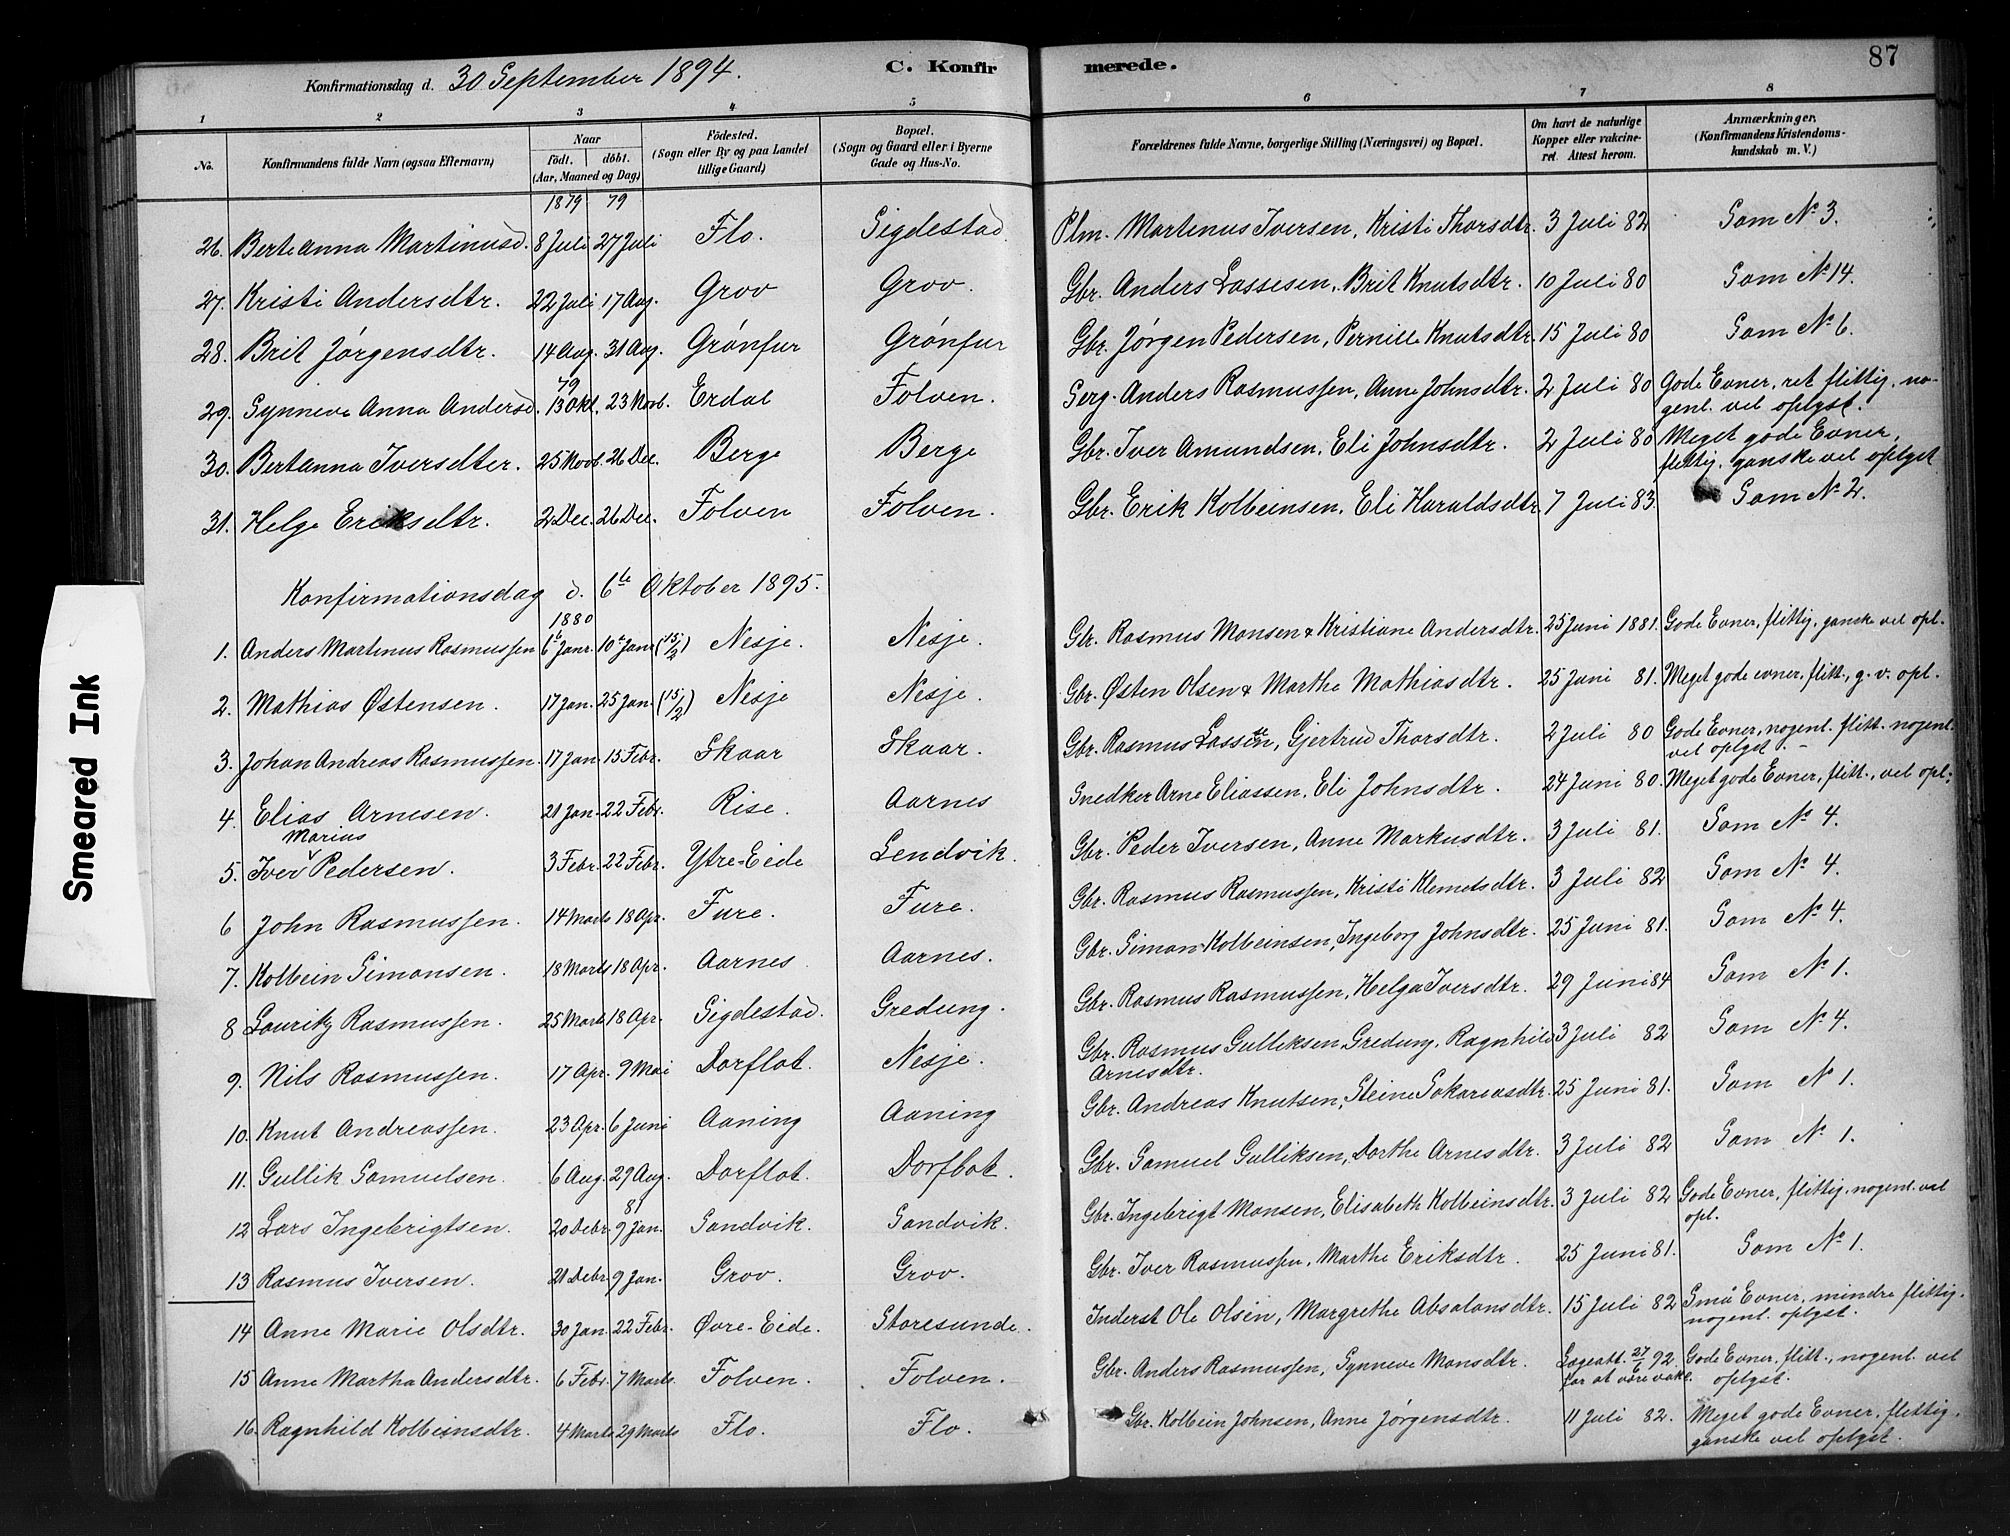 87
Konfirmationsdag d. 30 September 1894. C. Konfirmerede.
1 2 3 4 5 6 7 8
No. Konfirmandens fulde Navn (ogsaa Efternavn) Naar födt. döbt. (Aar, Maaned og Dag) Födested. (Sogn eller By og paa Landet tillige Gaard) Bopæl. (Sogn og Gaard eller i Byerne Gade og Hus-No. Forældrenes fulde Navne, borgerlige Stilling (Næringsvei) og Bopæl. Om havt de naturlige Kopper eller vakcineret. Attest herom. Anmærkninger. (Konfirmandens Kristendomskundskab m. V.)
1879 79
26. Berte Anna Martinusd. 8 Juli 27 Juli Flo. Sigdestad Plm. Martinus Iversen, Kristi Thorsdtr. 3 Juli 82 Som No 3.
27. Kristi Andersdtr. 22 Juli 17 Aug. Grov Grov. Gbr. Anders Lassesen, Brit Knutsdtr. 10 Juli 80 Som No 14.
28. Brit Jørgensdtr. 14 Aug. 31 Aug. Grønfur Grønfur Gbr. Jørgen Pedersen, Pernille Knutsdtr. 15 Juli 80 Som No 6.
79
29. Synneve Anna Andersd. 13 Okt. 23 Novb. Erdal Folven. Serg. Anders Rasmussen, Anne Johnsdtr. 2 Juli 80 Gode Evner, ret flittig, no-
genl. vel oplyst.
30. Bertanna Iversdter. 25 Novb. 26 Dec. Berge Berge Gbr. Iver Amundsen, Eli Johnsdtr. 2 Juli 80 Meget gode Evner,
flittig, ganske vel oplyst
31. Helge Eriksdtr. 2 Dec. 26 Dec. Folven Folven. Gbr. Erik Kolbeinsen, Eli Haraldsdtr. 7 Juli 83. Som No 2.
Konfirmationsdag d. 6te Oktober 1895.
1880
1. Anders Martinus Rasmussen 6te Janr. 10te Janr (15/2) Nesje. Nesje. Gbr. Rasmus Monsen & Kristiane Andersdtr. 25 Juni 1881. Gode Evner, flittig, ganske vel opl.
2. Mathias Østensen. 17 Jan. 25 Jan. (15/2) Nesje Nesje. Gbr. Østen Olsen & Marthe Mathiasdtr. 25 Juni 81. Meget gode evner, flitt., g. v. opl.
3. Johan Andreas Rasmussen. 17 Jan. 15 Febr. Skaar Skaar. Gbr. Rasmus Lassen, Gjertrud Thorsdtr. 2 Juli 80 Gode Evner, nogenl. flitt. nogenl.
vel oplyst. -
4. Elias Arnesen. 21 Jan. 22 Febr. Rise. Aarnes Snedker Arne Eliassen, Eli Johnsdtr. 24 Juni 80. Meget gode Evner, flitt., vel opl.
Marius
5. Iver Pedersen. 3 Febr. 22 Febr. Ytre-Eide Lendvik. Gbr. Peder Iversen, Anne Markusdtr. 3 Juli 81. Som No 4.
6 John Rasmussen. 14 Marts 18 Apr. Fure. Fure. Gbr. Rasmus Rasmussen, Kristi Klemetsdtr. 3 Juli 82 Som No 4.
7. Kolbein Simonsen. 18 Marts 18 Apr. Aarnes Aarnes. Gbr. Simon Kolbeinsen, Ingeborg Johnsdtr. 25 Juni 81. Som No 4.
8 Lauritz Rasmussen. 25 Marts 18 Apr. Sigdestad. Gredung. Gbr. Rasmus Rasmussen, Helga Iversdtr. 29 Juni 84 Som No 1.
9. Nils Rasmussen. 17 Apr. 9 Mai Dorflot. Nesje. Gbr. Rasmus Gulliksen Gredung, Ragnhild 3 Juli 82 Som No 4.
Arnesdtr.
10. Knut Andreassen. 23 Apr. 6 Juni Aaning Aaning Gbr. Andreas Knutsen, Steine Sakariasdtr. 25 Juni 81. Som No 1.
11. Gullik Samuelsen. 6 Aug. 29 Aug. Dorflot. Dorflot. Gbr. Samuel Gulliksen, Dorthe Arnesdtr. 3 Juli 82 Som No 1.
81
12 Lars Ingebrigtsen. 20 Debr. 9 Jan. Sandvik. Sandvik. Gbr. Ingebrigt Monsen, Elisabeth Kolbeinsdtr. 3 Juli 82 Gode Evner, flittig, nogenl. vel
opl.
13 Rasmus Iversen. 21 Debr. 9 Jan. Grov. Grov. Gbr. Iver Rasmussen, Marthe Eriksdtr. 25 Juni 81. Som No 1.
14 Anne Marie Olsdtr. 30 Jan. 22 Febr. Øvre-Eide. Storesunde. Inderst Ole Olsen, Margrethe Absalonsdtr. 15 Juli 82 Små Evner, mindre flittig,
nogenl. oplyst.
15 Anne Martha Andersdtr. 6 Febr. 7 Marts. Folven. Folven. Gbr. Anders Rasmussen, Synneve Monsdtr. Lægeatt. 27/6 92 Gode Evner, flitt., nogenl. vel
for at være vakc. oplyst.
16. Ragnhild Kolbeinsdtr. 4 Marts 29 Marts Flo. Flo. Gbr. Kolbein Johnsen, Anne Jørgensdtr. 11 Juli 82. Meget gode Evner, flittig,
ganske vel oplyst.
Smeared Ink